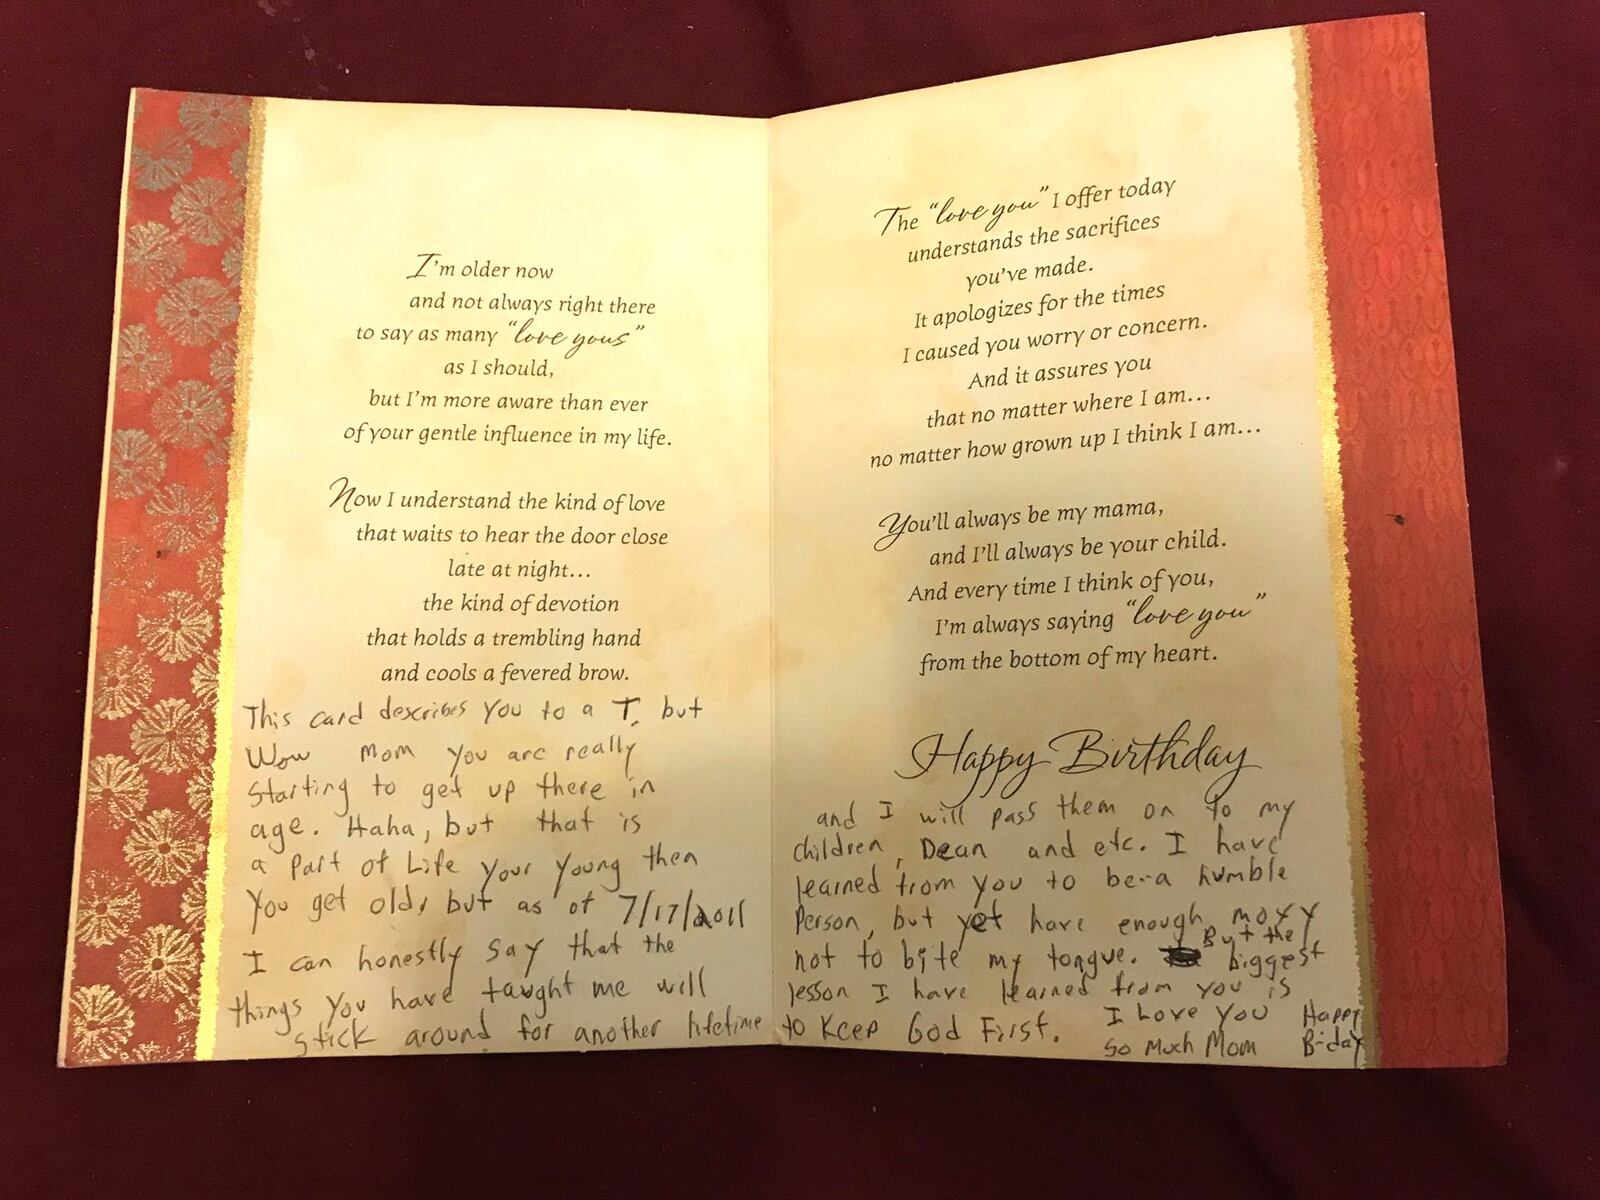 I'm older now
and not always right there
to say as many “love yous”
as I should,
but I'm more aware than ever
of your gentle influence in my life.
Now I understand the kind of love
that waits to hear the door close
late at night...
the kind of devotion
that holds a trembling hand
and cools a fevered brow.
This card describes you to a T, but
Wow mom you are really
Starting to get up there in
age. Haha, but that is
a part of Life your young then
You get old, but as of 7/17/2011
I can honestly say that the
things you have taught me will
stick around for another lifetime
The “love you” I offer today
understands the sacrifices
you've made.
It apologizes for the times
I caused you worry or concern.
And it assures you
that no matter where I am...
no matter how grown up I think I am...
You'll always be my mama,
and I'll always be your child.
And every time I think of you,
I'm always saying “love you”
from the bottom of my heart.
Happy Birthday
and I will pass them on to my
children, Dean and etc. I have
learned from you to be a humble
Person, but yet have enough moxy
not to bite my tongue. But the biggest
lesson I have learned from you is
to Keep God First.
I Love You
So Much Mom
Happy
B-day